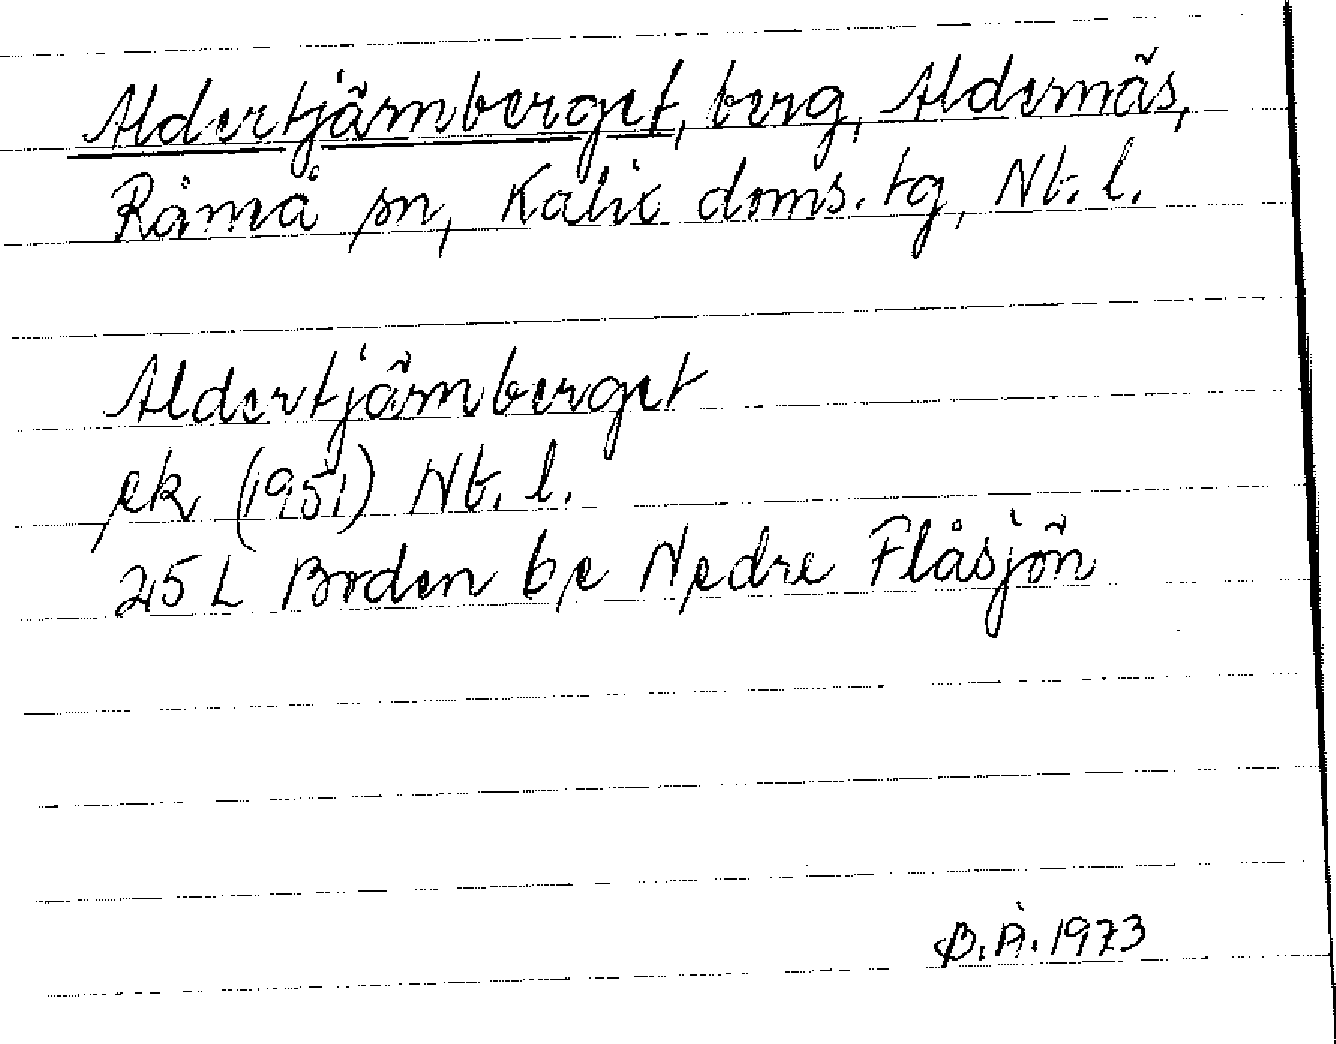 Aldertjärnberget, berg, Aldernäs,
Råneå sn, Kalix doms. tg, Nb. l.
Aldertjärnberget
ek (1951) Nb. l.
25 L Boden be Nedre Flåsjön
B. Å. 1973